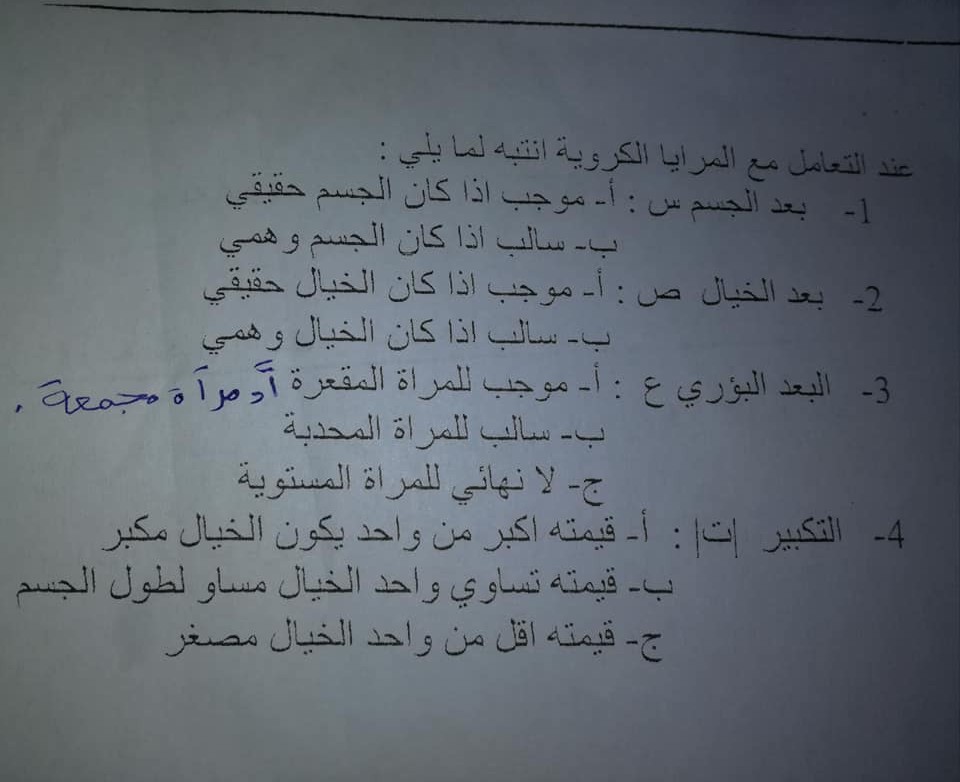 عند التعامل مع المرايا الكروية انتبه لما يلي :
1- بعد الجسم س : أ- موجب اذا كان الجسم حقيقي
ب- سالب اذا كان الجسم وهمي
2- بعد الخيال ص : أ- موجب اذا كان الخيال حقيقي
ب- سالب اذا كان الخيال وهمي
3- البعد البؤري ع : أ- موجب للمراة المقعرة أو مرآة مجمعة .
ب- سالب للمراة المحدبة
ج- لا نهائي للمراة المستوية
4- التكبير |ت| : أ- قيمته اكبر من واحد يكون الخيال مكبر
ب- قيمته تساوي واحد الخيال مساو لطول الجسم
ج- قيمته اقل من واحد الخيال مصغر